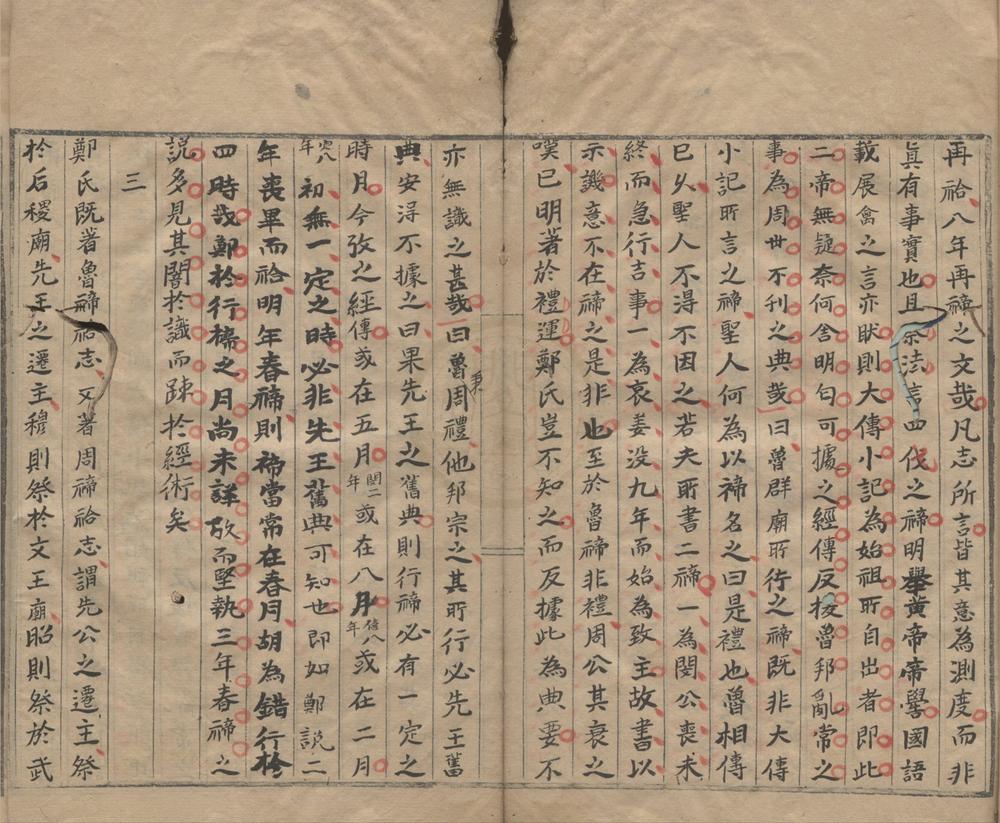 再祫八年再禘之文哉凡志所言皆其意為測度而非
眞有事實也且祭法言四代之禘明舉黃帝帝嚳國語
載展禽之言亦猒則大傳小記為始祖所自出者即此
二帝無疑奈何舍明句可據之經傳反按魯邦亂常之
事為周世不刊之典哉曰魯群廟所行之禘既非大傳
小記所言之禘聖人何為以禘名之曰是禮也魯相傳
已久聖人不得不因之若夫所書二禘一為閔公喪未
終而急行吉事一為哀姜没九年而始為致主故書以
示譏意不在禘之是非也至於魯禘非禮周公其衰之
嘆已明著於禮運鄭氏豈不知之而反據此為典要不
亦無識之甚哉曰魯秉周禮他邦宗之其所行必先王舊
典安淂不據之曰果先王之舊典則行禘必有一定之
時月今攷之經傳或在五月閔二年或在八月僖八年或在二月
定八年初無一定之時必非先王舊典可知也即如鄭說二
年喪畢而祫明年春禘則禘當常在春月胡為錯行於
四時哉鄭於行禘之月尚未詳攷而堅執三年春禘之
説多見其闇於識而踈於經術矣
三
鄭氏既著魯禘祫志又著周禘祫志謂先公之遷主祭
於后稷廟先王之遷主穆則祭於文王廟昭則祭於武